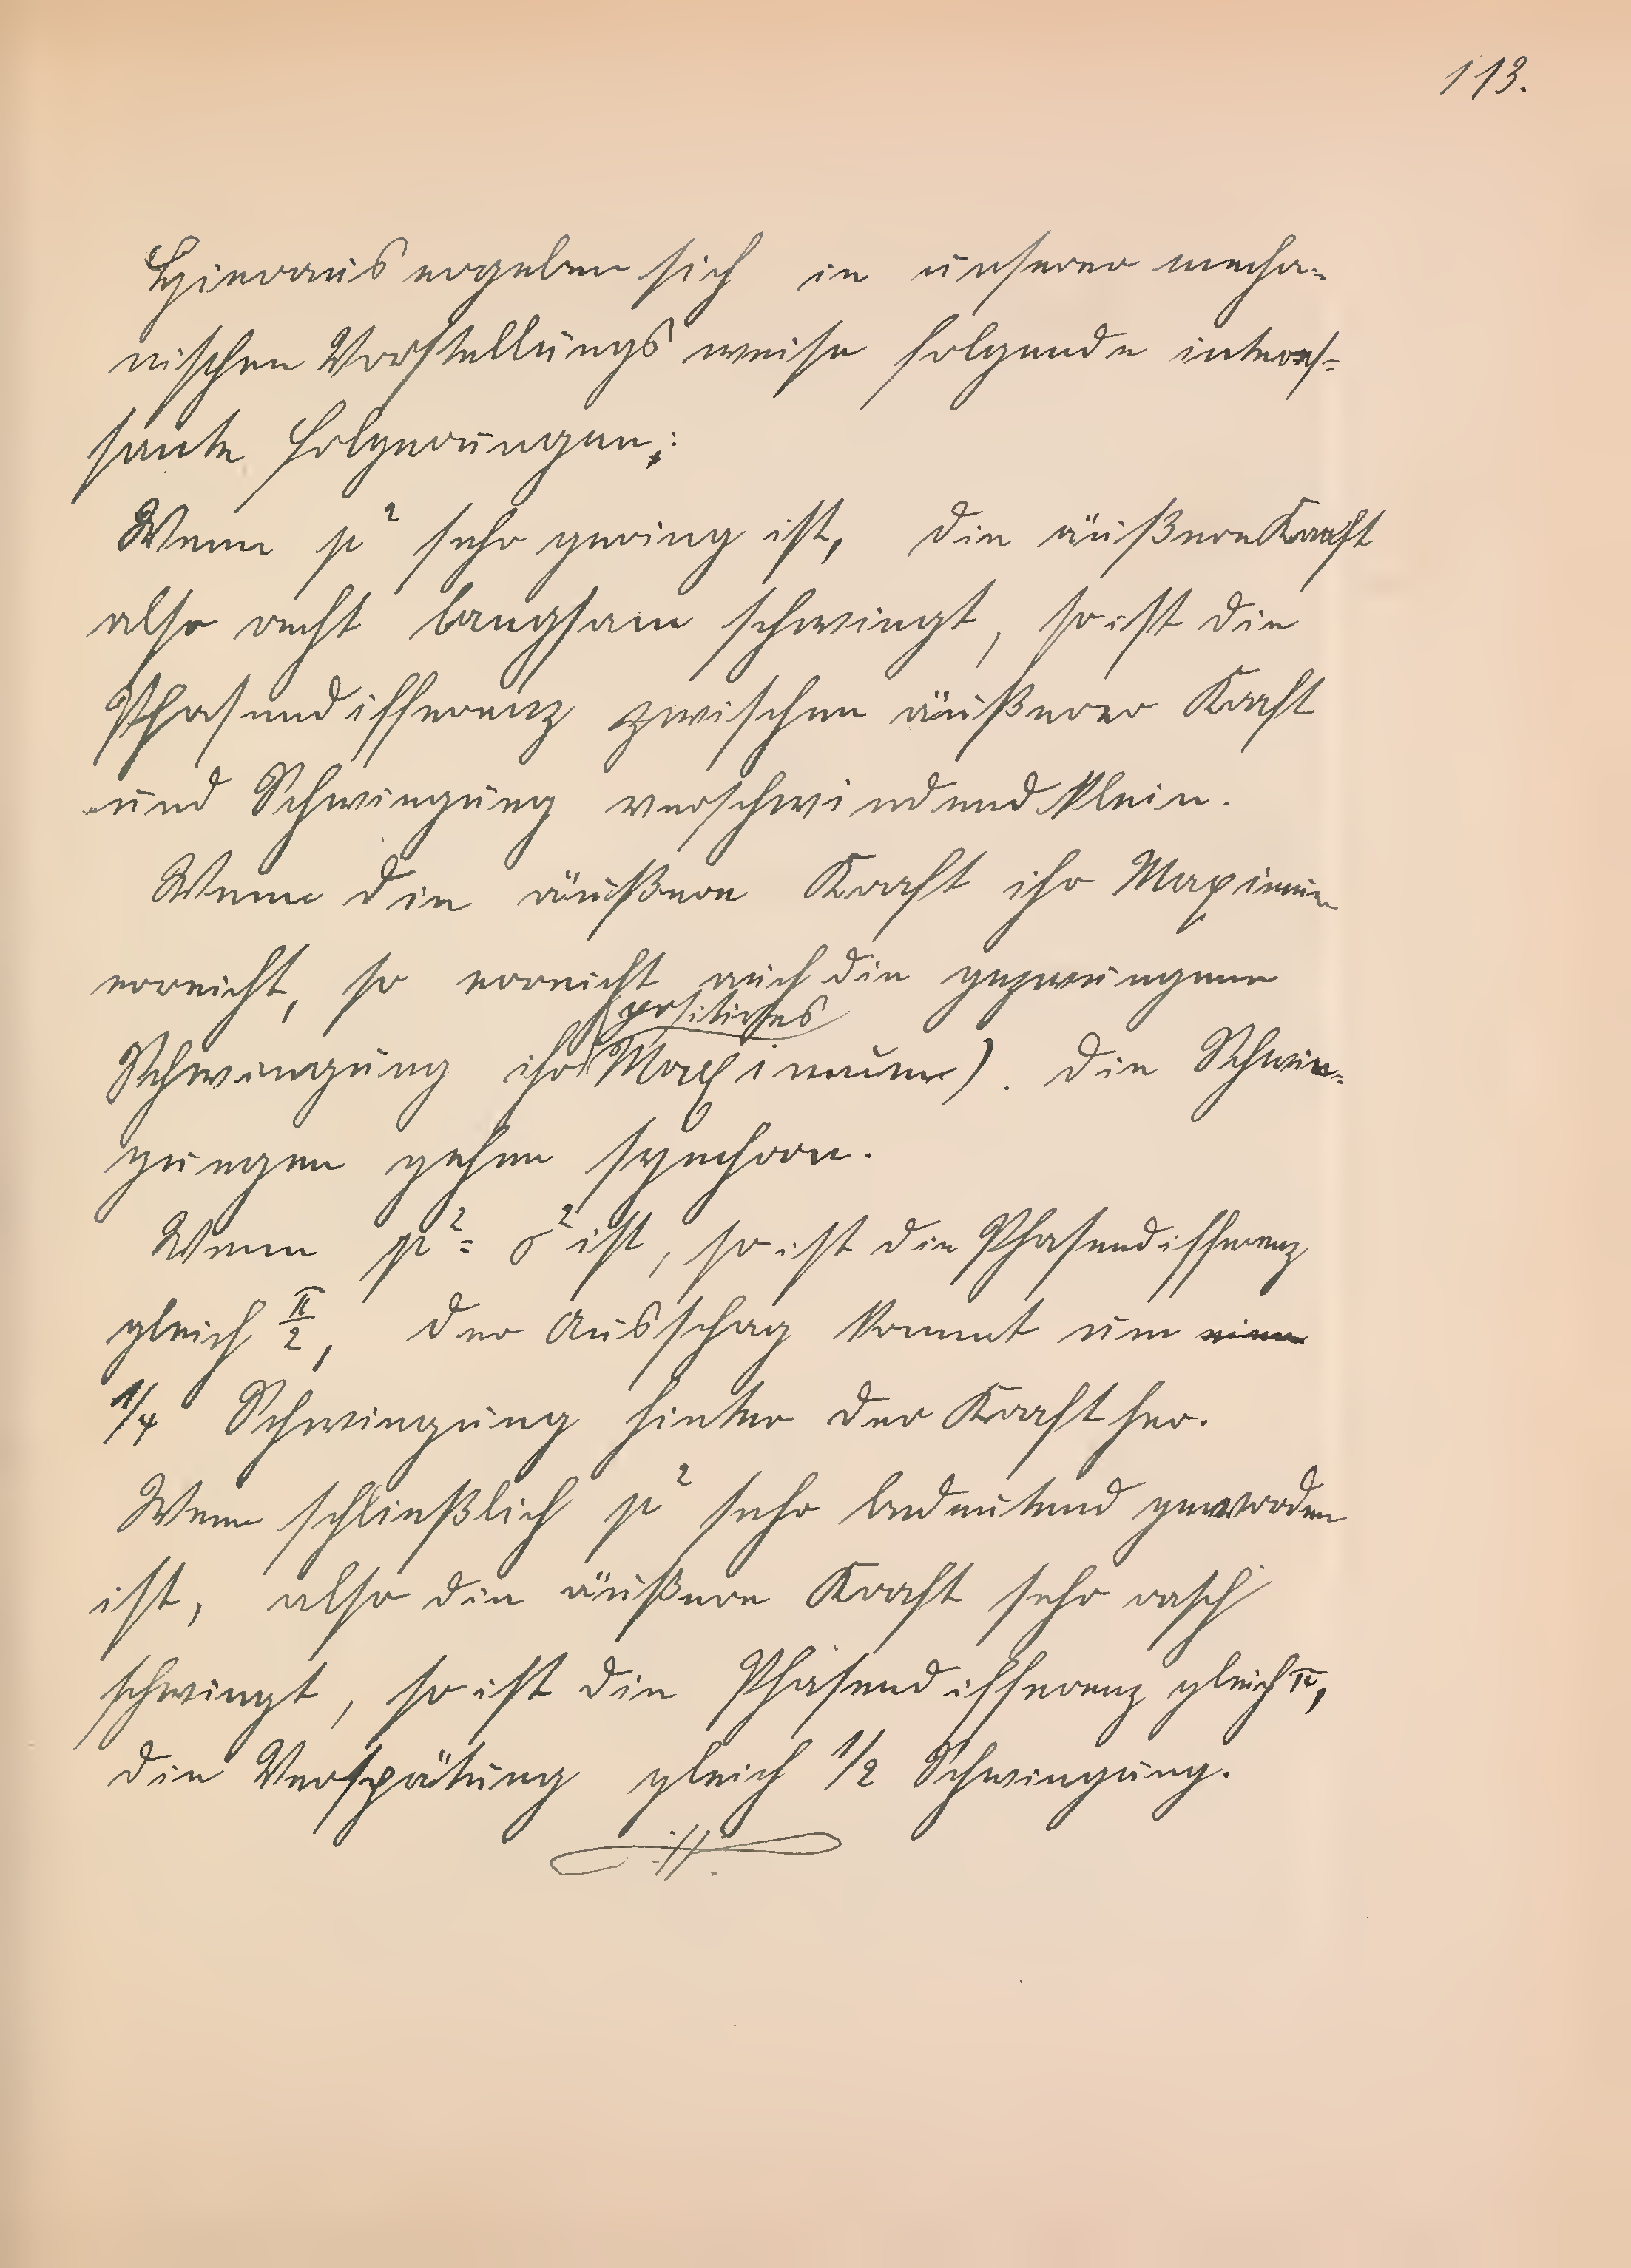 113.
Hieraus ergeben sich in unserer mecha-
nischen Vorstellungsweise folgende interes-
sante Folgerungen:
Wenn p² sehr gering ist, die äußere Kraft
also recht langsam schwingt, so ist die
Phasendifferenz zwischen äußerer Kraft
und Schwingung verschwindend klein.
Wenn die äußere Kraft ihr Maximum
erreicht, so erreicht auch die gezwungene
positives
Schwingung ihr (Maximum). Die Schwin-
gungen gehen synchron.
Wenn p² = σ² ist, so ist die Phasendifferenz
gleich π/2, der Ausschag kommt um eine
1/4 Schwingung hinter der Kraft her.
Wenn schließlich p² sehr bedeutend geworden
ist, also die äußere Kraft sehr rasch
schwingt, so ist die Phasendifferenz gleich π,
die Verspätung gleich 1/2 Schwingung.